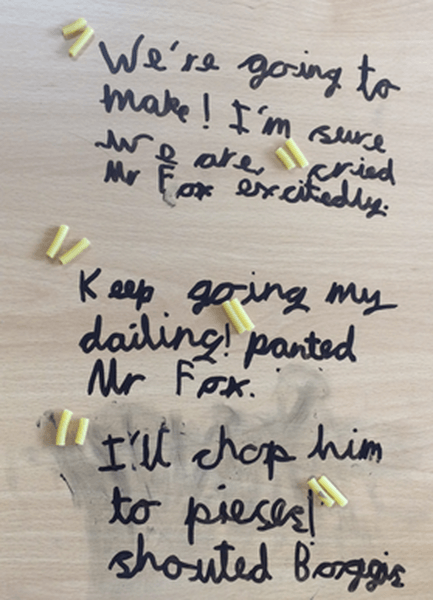 We're going to
make! I'm sure
we are, cried
Mr Fox excitedly.
Keep going my
dailing! panted
Mr Fox.
I'll chop him
to pieses!
shouted Boggis